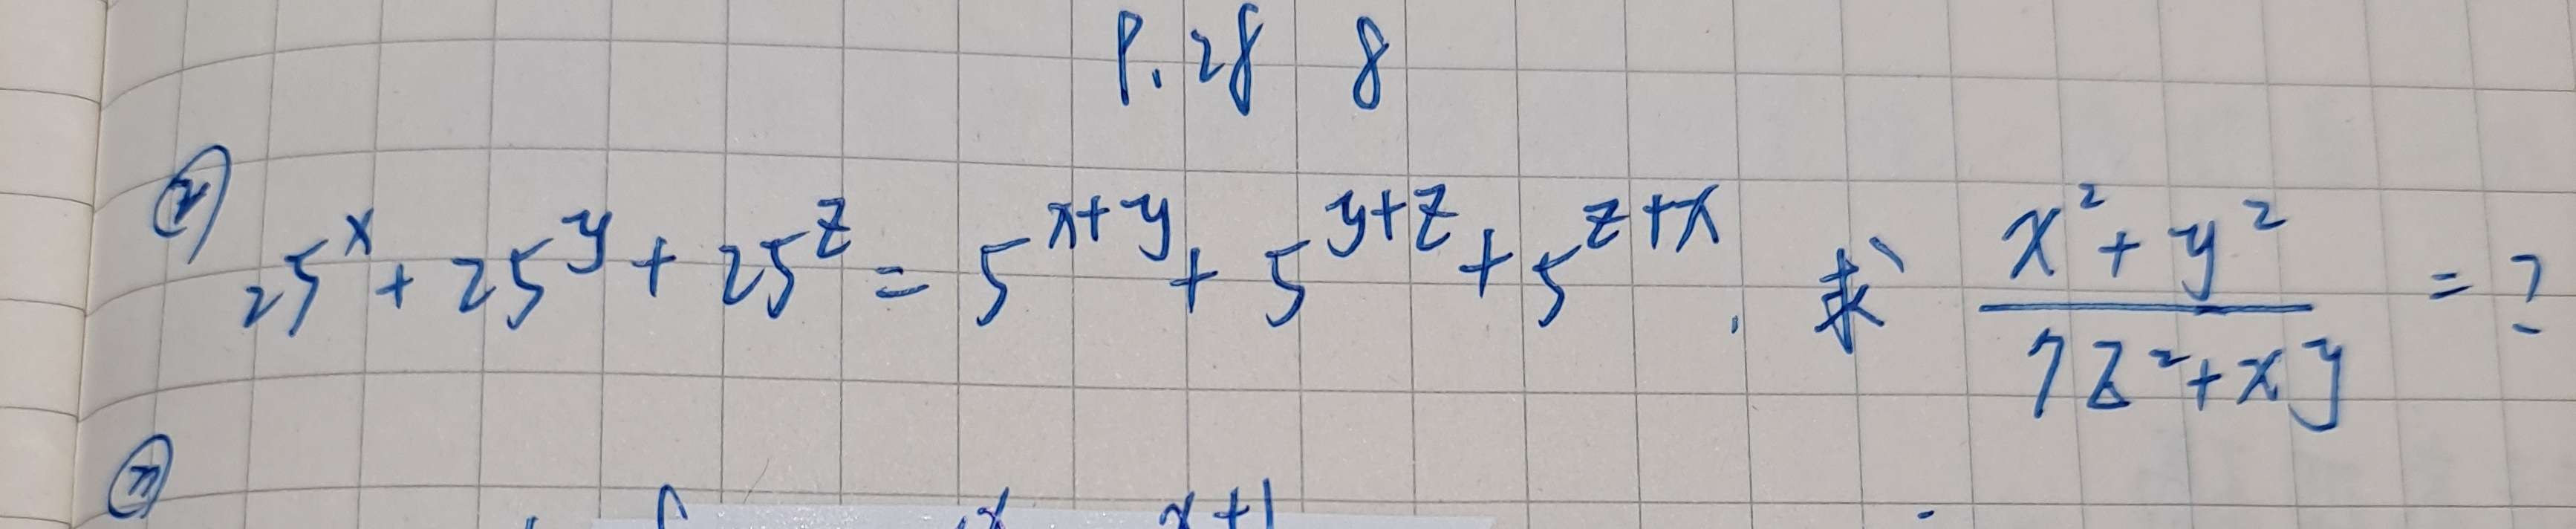 P.28 8
② 25^x + 25^y + 25^z = 5^{x+y} + 5^{y+z} + 5^{z+x}, 求 \frac{x^2+y^2}{7z^2+xy} = ?
x x+1